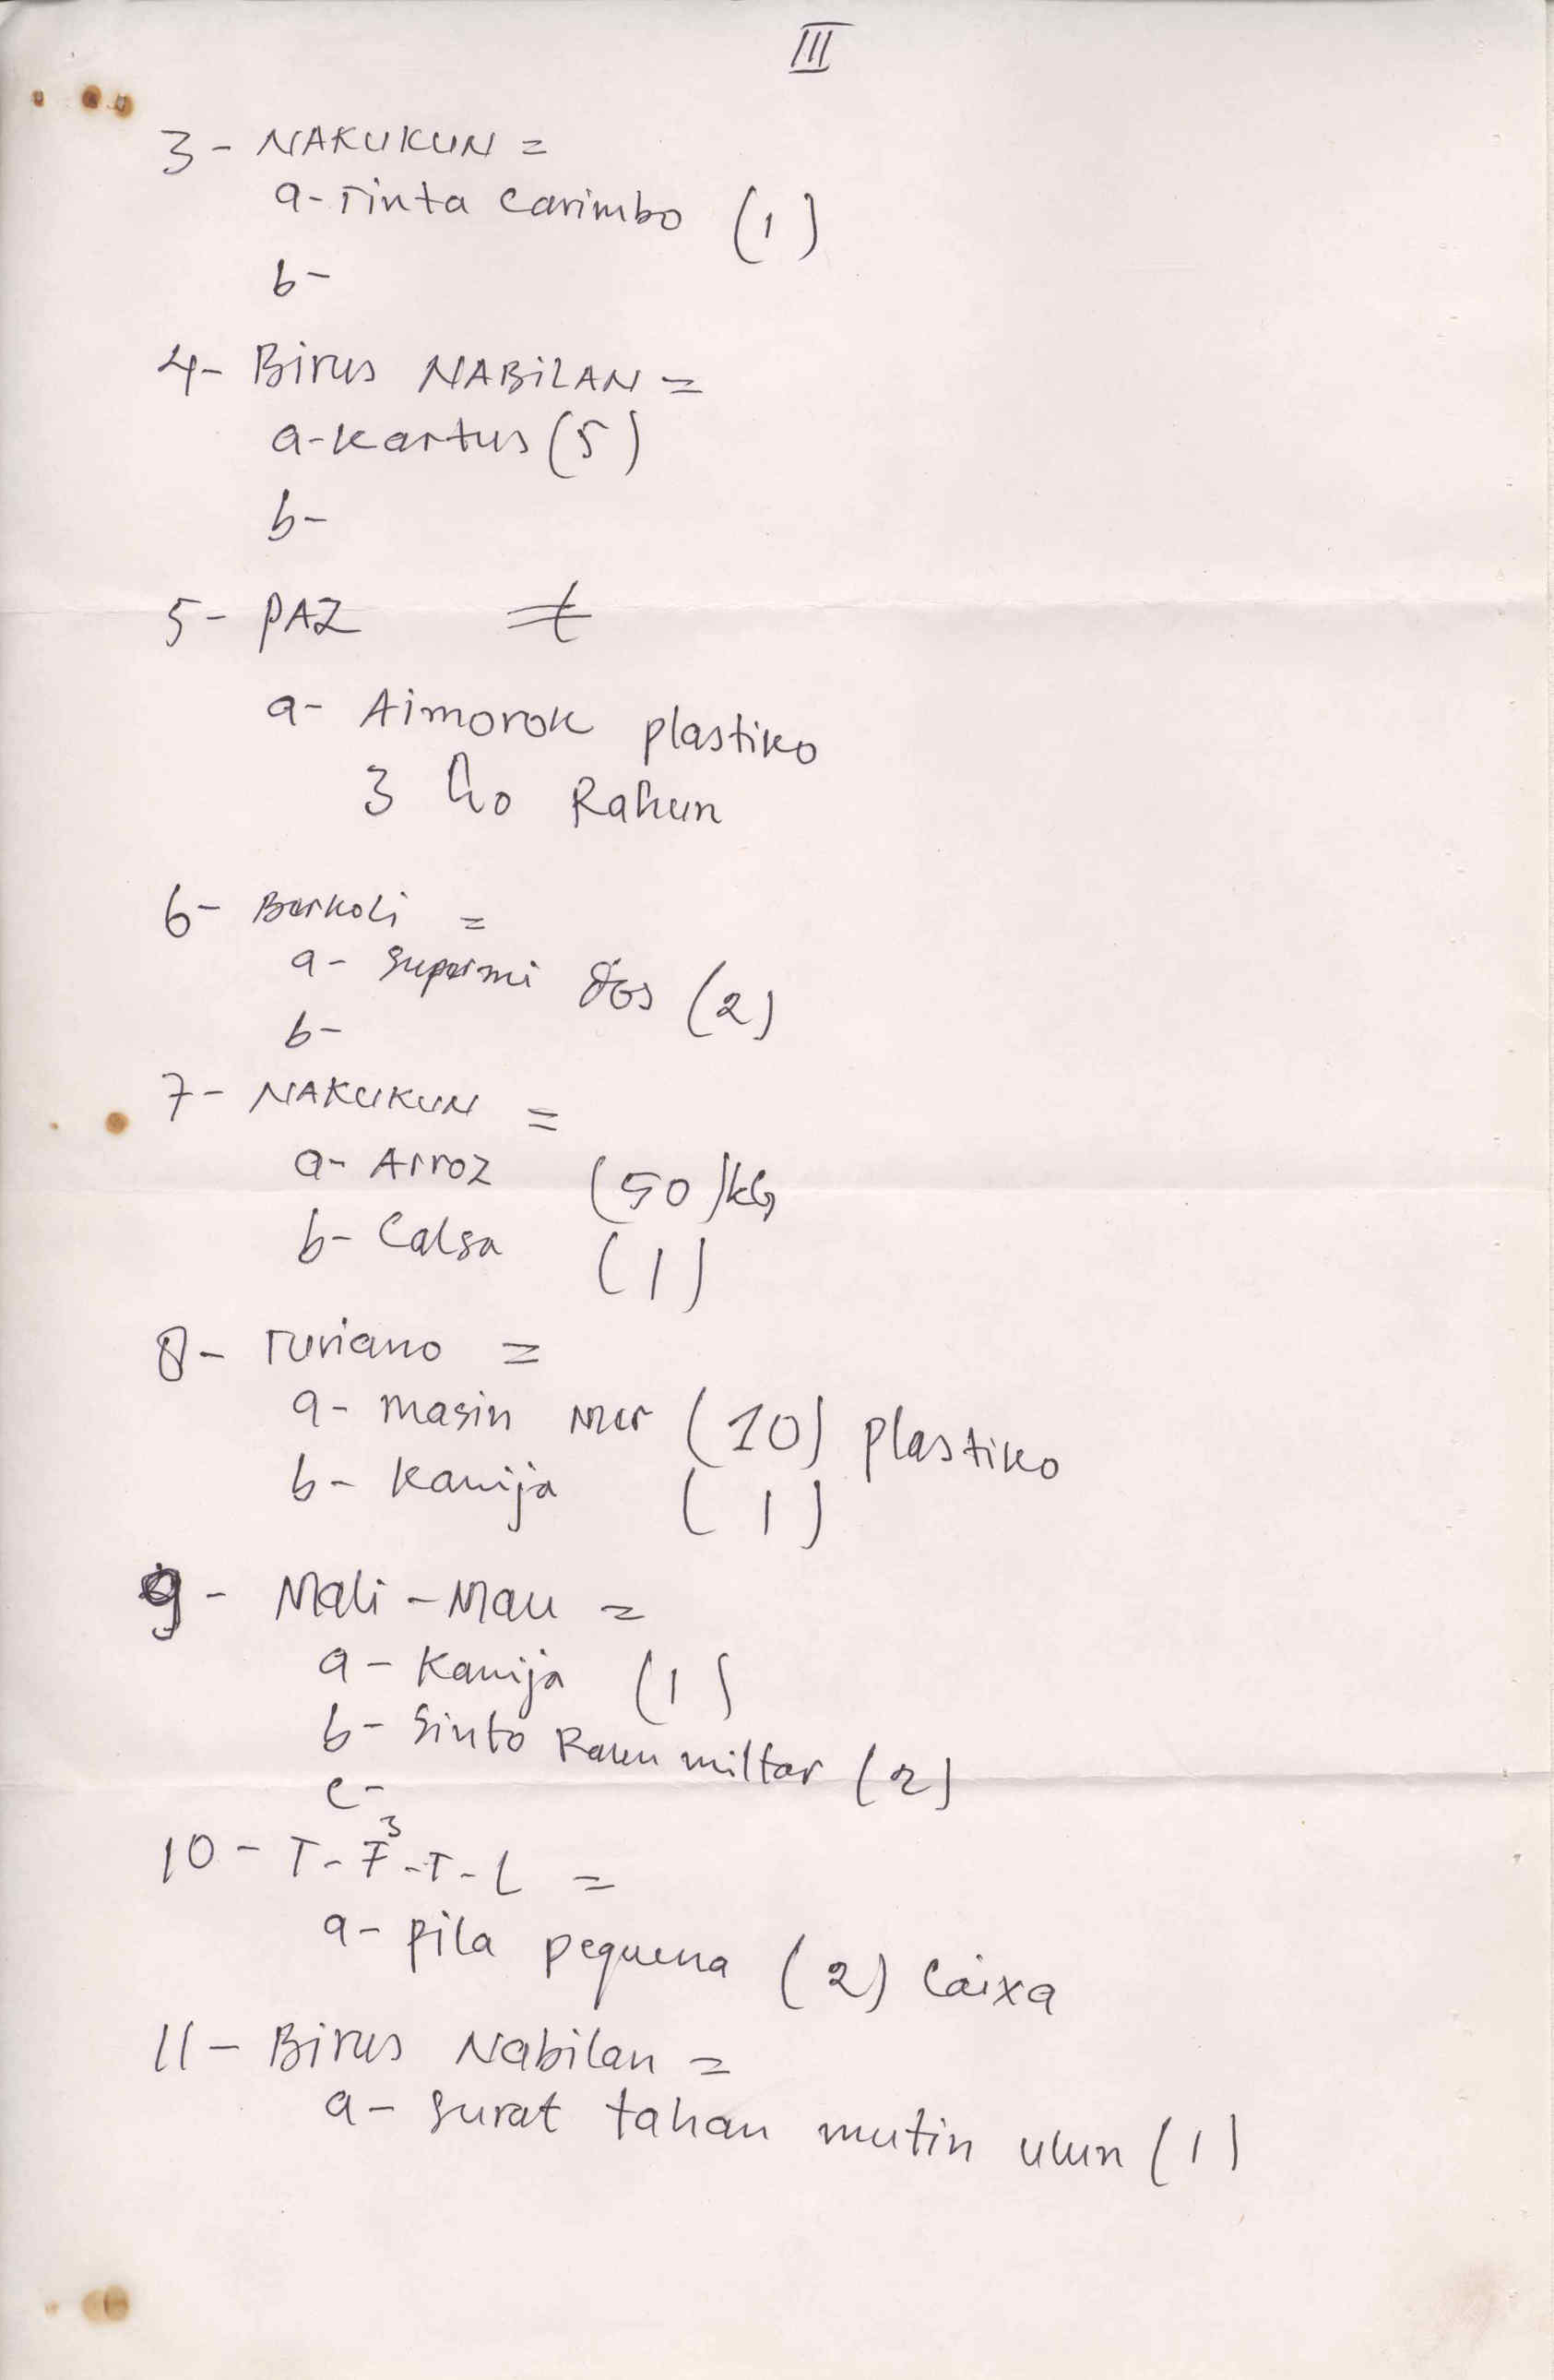 III
3- NAKUKUN =
a- Tinta Carimbo (1)
b-
4- Birus NABILAN =
a- kartus (5)
b-
5- PAZ
a- Aimoruk plastiko
3 ho Rahun
6- Berkoli =
a- supermi dos (2)
b-
7- NAKUKUN =
a- Arroz (50) kG
b- Calsa (1)
8- Turiano =
a- masin mer (10) plastiko
b- Kamija (1)
9- Mali-Mau =
a- Kamija (1)
b- Sinto miltar (2)
c-
10- T-F3-T-L =
a- Pila pequena (2) Caixa
11- Birus Nabilan =
a- surat tahan mutin ulun (1)